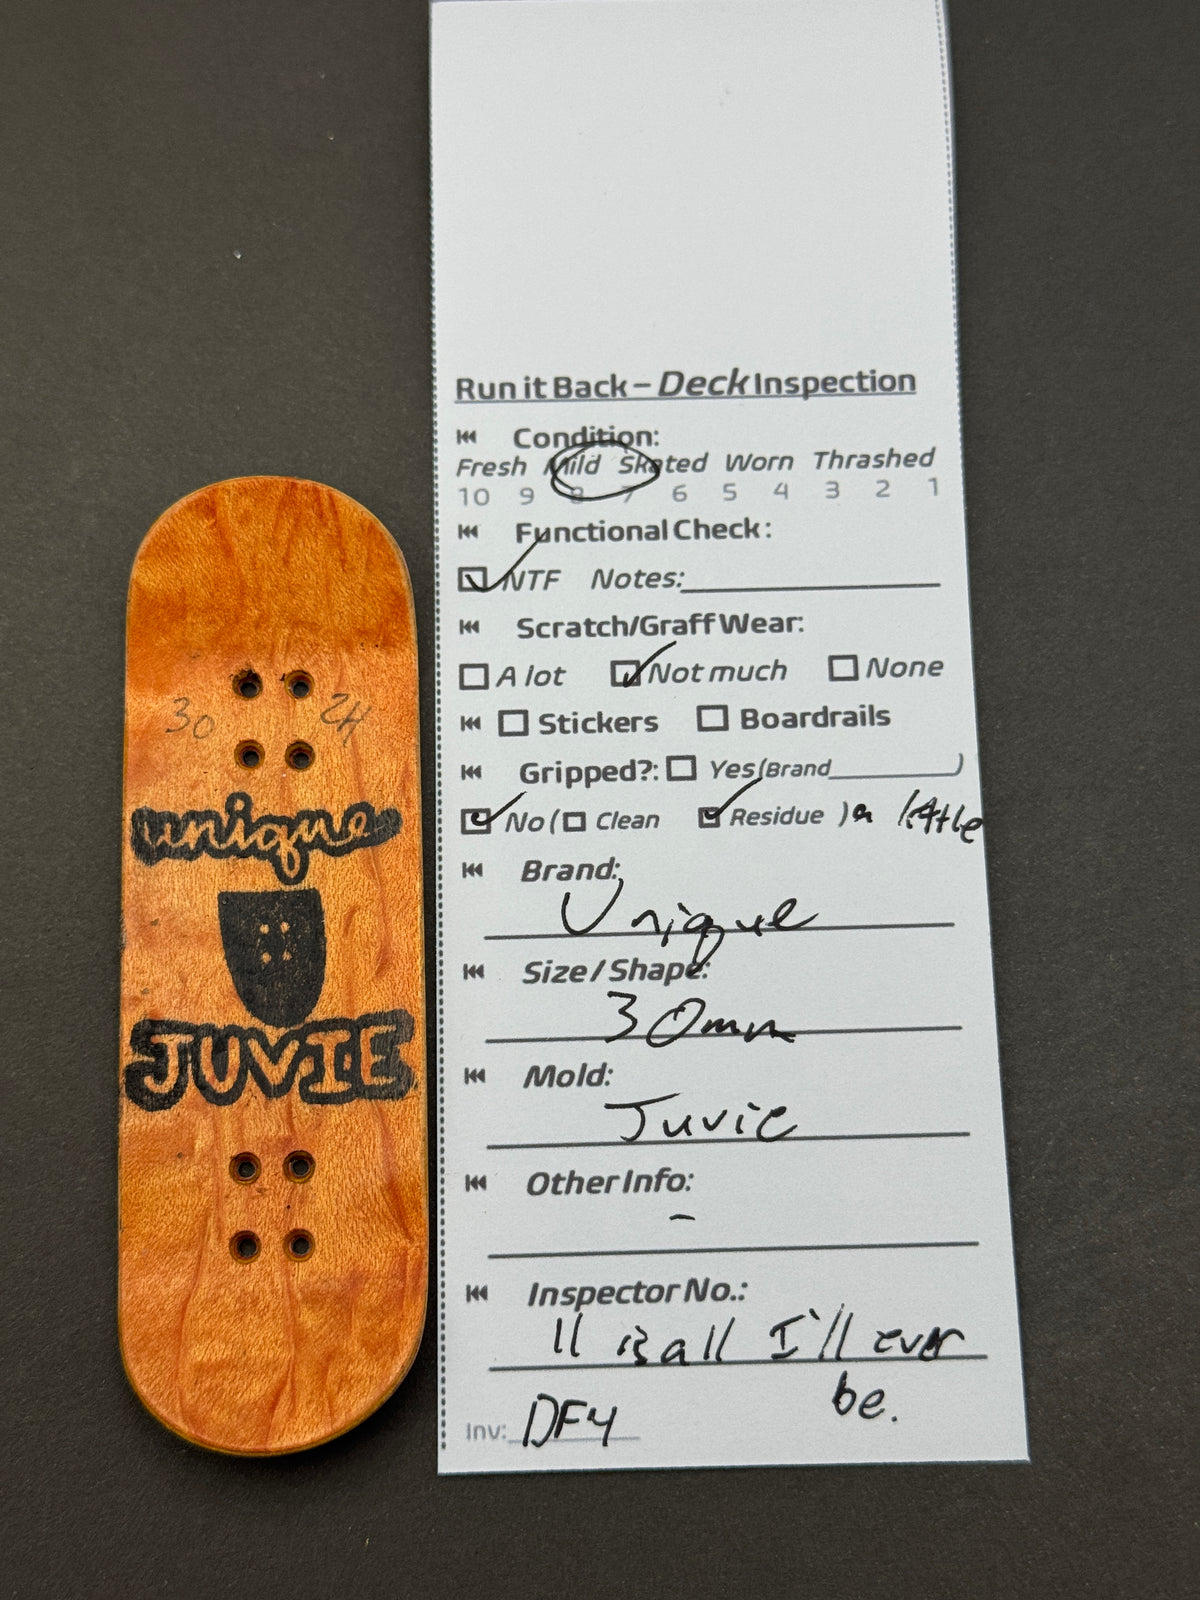 30 2H
unique
JUVIE
Run it Back – Deck Inspection
Condition:
Fresh Mild Skated Worn Thrashed
10 9 8 7 6 5 4 3 2 1
Functional Check:
NTF Notes:
Scratch/Graff Wear:
A lot Not much None
Stickers Boardrails
Gripped?: Yes(Brand )
No ( Clean Residue ) a little
Brand:
Unique
Size/Shape:
30mm
Mold:
Juvie
Other Info:
–
Inspector No.:
11 is all I'll ever
be.
Inv: DF4